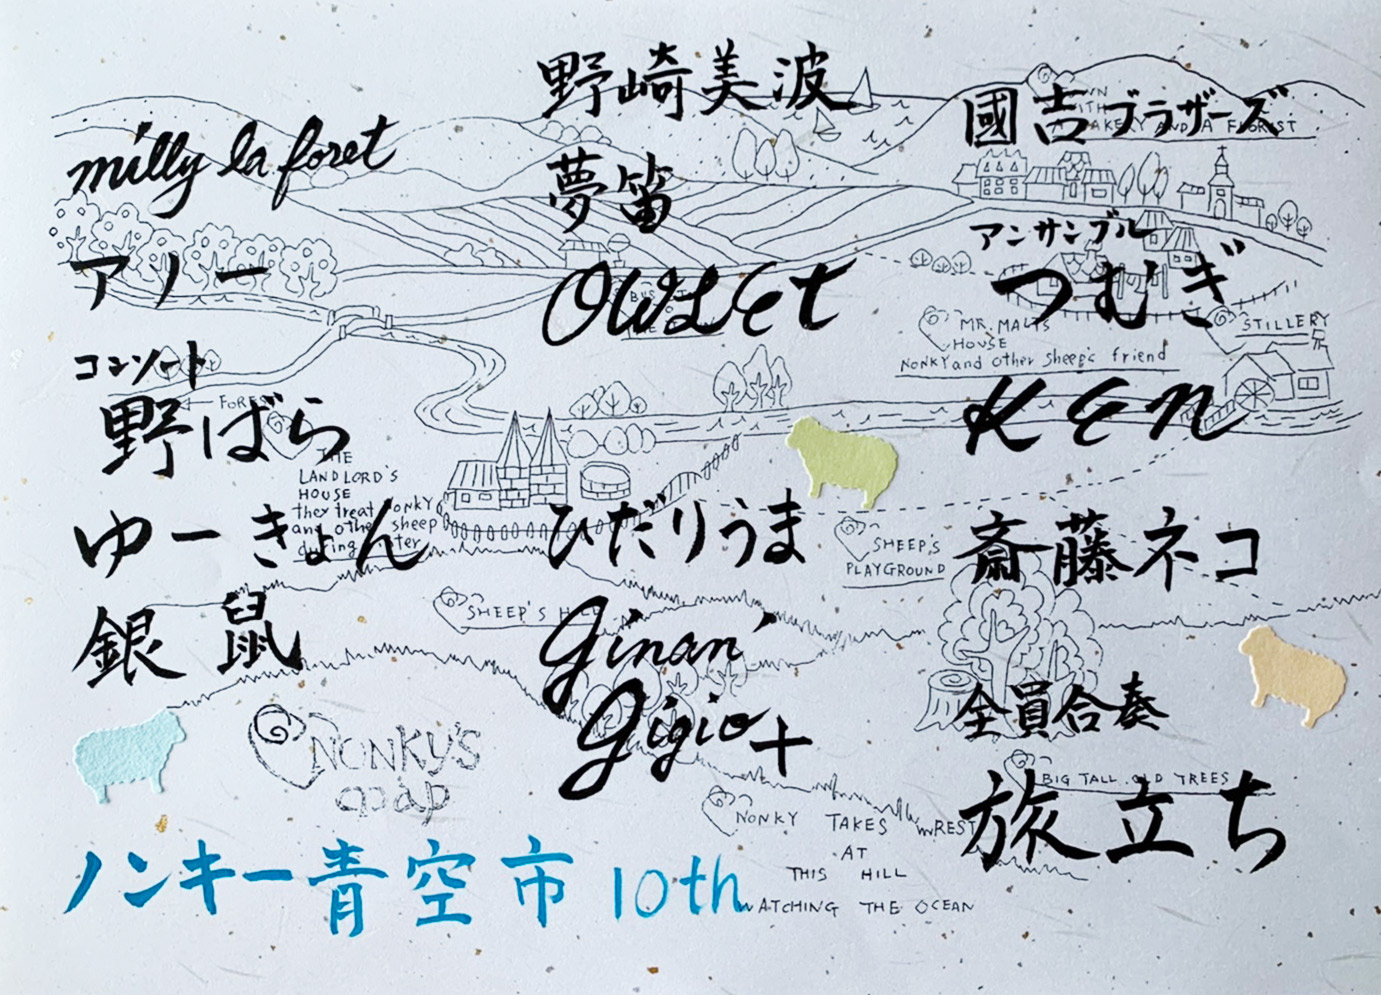 milly la foret
アノー
コンソート
野ばら
ゆーきょん
銀鼠
野崎美波
夢笛
OWLet
ひだりうま
ginan'
gigio+
國吉ブラザーズ
アンサンブル
つむぎ
KEN
斎藤ネコ
全員合奏
旅立ち
ノンキー青空市 10th
FOREST
THE
LANDLORD'S
HOUSE
they treat NONKY
and other sheep
during winter
SHEEP'S HILL
NONKY'S
map
BUS
MR. MALTS
HOUSE
NONKY and other sheep's friend
SHEEP'S
PLAYGROUND
BIG TALL OLD TREES
NONKY TAKES REST
AT
THIS HILL
WATCHING THE OCEAN